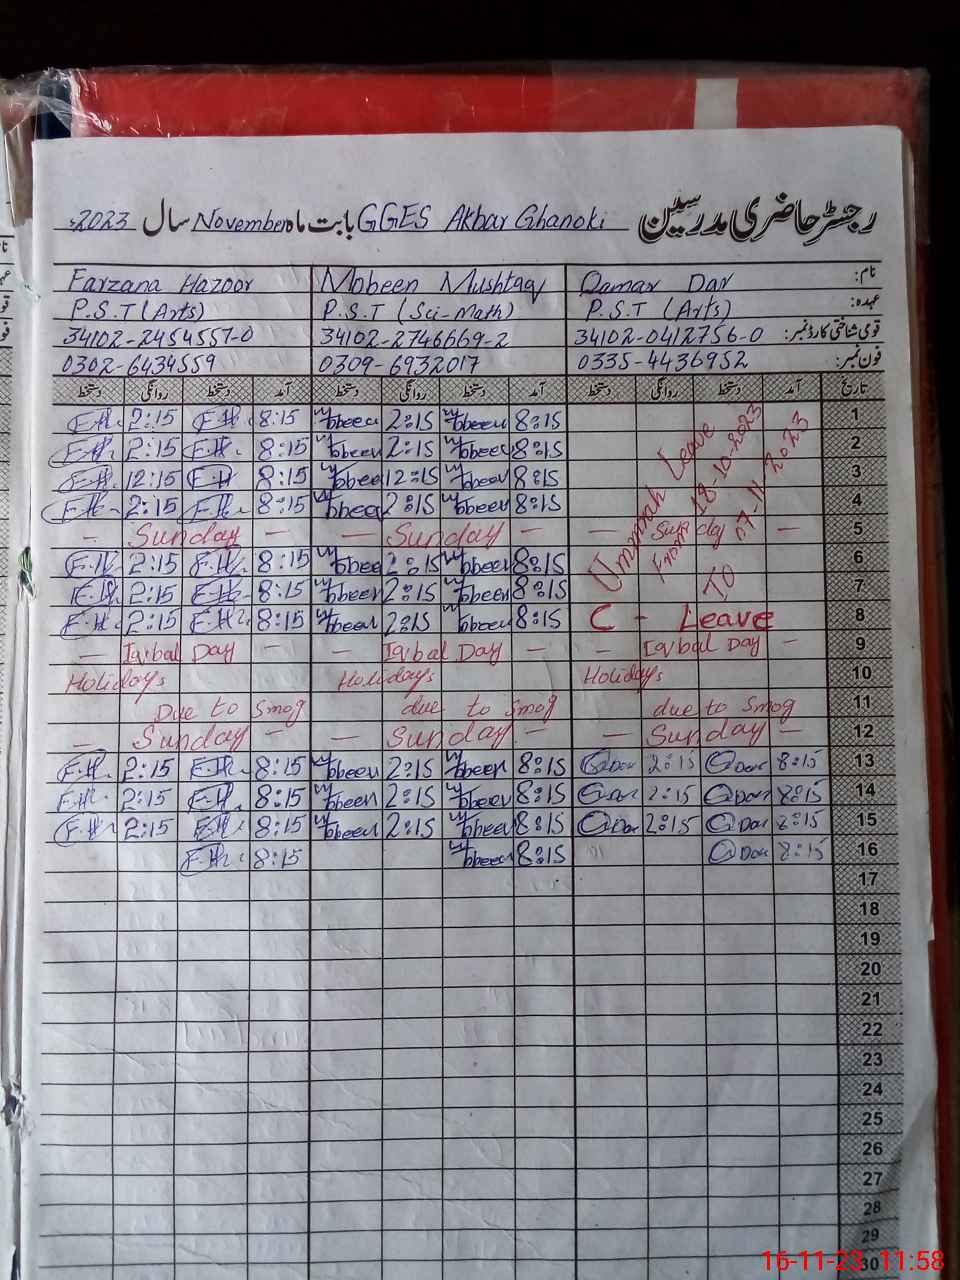 رجسٹر حاضری مدرسین GGES Akbar Ghanoki بابت ماہ November سال 2023ء
نام: Qamar Dar Mobeen Mushtaq Farzana Hazoor
عہدہ: P.S.T (Arts) P.S.T (Sci-Math) P.S.T (Arts)
قومی شناختی کارڈ نمبر: 34102-0412756-0 34102-2746669-2 34102-2454557-0
فون نمبر: 0335-4436952 0309-6932017 0302-6434559
تاریخ آمد دستخط روانگی دستخط آمد دستخط روانگی دستخط آمد دستخط روانگی دستخط
Ummrah Leave
From 18-10-2023
To 07-11-2023
1 8:15 Mobeen 2:15 Mobeen 8:15 F.H. 2:15 F.H.
2 8:15 Mobeen 2:15 Mobeen 8:15 F.H. 2:15 F.H.
3 8:15 Mobeen 12:15 Mobeen 8:15 F.H. 12:15 F.H.
4 8:15 Mobeen 2:15 Mobeen 8:15 F.H. 2:15 F.H.
5 - Sunday - - Sunday - - Sunday -
6 8:15 Mobeen 2:15 Mobeen 8:15 F.H. 2:15 F.H.
7 8:15 Mobeen 2:15 Mobeen 8:15 F.H. 2:15 F.H.
8 C - Leave 8:15 Mobeen 2:15 Mobeen 8:15 F.H. 2:15 F.H.
9 - Iqbal Day - - Iqbal Day - - Iqbal Day -
10 Holidays Holidays Holidays
11 due to Smog due to Smog Due to Smog
12 - Sunday - - Sunday - - Sunday -
13 8:15 Q Dar 2:15 Q Dar 8:15 Mobeen 2:15 Mobeen 8:15 F.H. 2:15 F.H.
14 8:15 Q Dar 2:15 Q Dar 8:15 Mobeen 2:15 Mobeen 8:15 F.H. 2:15 F.H.
15 8:15 Q Dar 2:15 Q Dar 8:15 Mobeen 2:15 Mobeen 8:15 F.H. 2:15 F.H.
16 8:15 Q Dar 8:15 Mobeen 8:15 F.H.
17
18
19
20
21
22
23
24
25
26
27
28
29
30
16-11-23 11:58